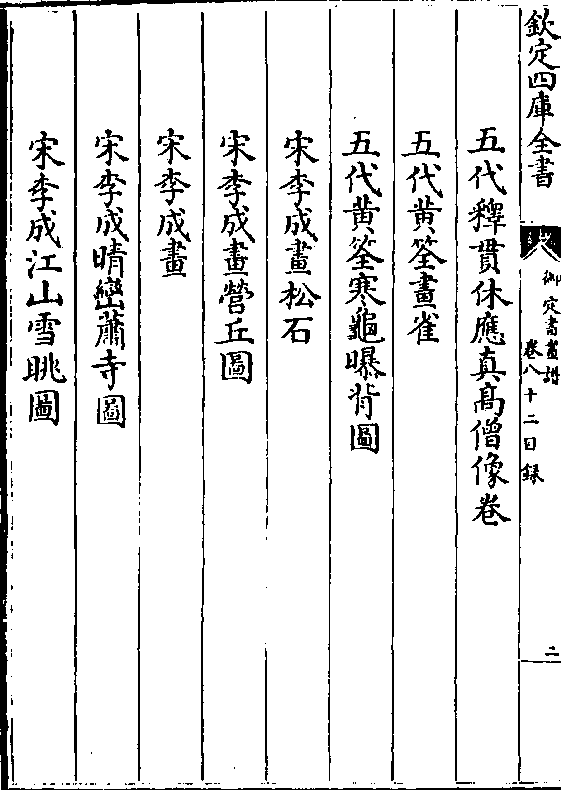 欽定四庫全書
御定書畫譜
卷八十二目録
二
五代釋貫休應真髙僧像卷
五代黄筌畫雀
五代黄筌寒龜曝背圖
宋李成畫松石
宋李成畫營丘圖
宋李成畫
宋李成晴巒蕭寺圖
宋李成江山雪眺圖